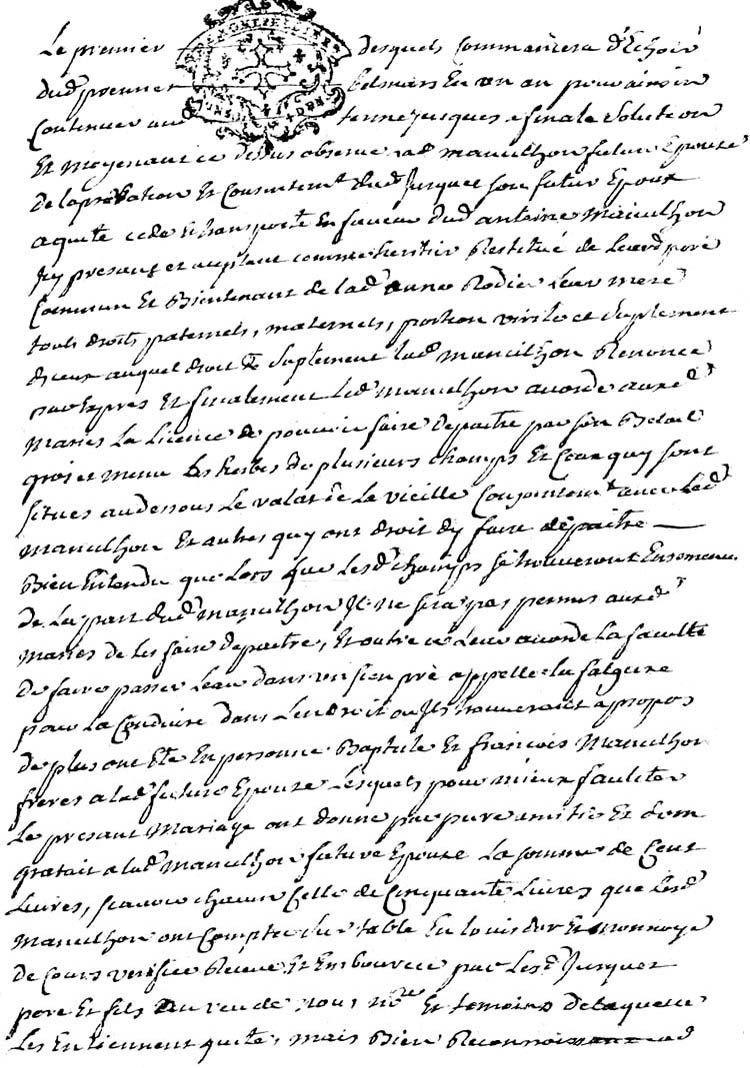 Le premier desquels commancera d'Echoir
dud premier
Continuer au terme jusques a finale Solution
Et moyenant ce dessus observé lad marcilhon future Epouse
de laprobation Et Consentemt dud Jurquet son futur Epoux
a quitté cede Et transporte En faveur dud antoine Marcilhon
Icy present et aceptant comme heritier Restitué de Leurd pere
Commun Et Bientenant de lad anne Rodier Leur mere
touts droits, paternels, maternels, portion virile et Suplement
d'iceux auquel droit de Suplement lad marcilhon Renonce
par Expres Et finalement Led Marcilhon acorde auxd
Maries La Licence de pouvoir faire depaitre par son Betail
gros et menu Les herbes de plusieurs champs Et Ceux quy sont
situes audessous Le valat de La vieille Conjointemt avec Led
Marcilhon Et autres quy ont droit dy faire depaitre
Bien Entendu que Lors que Lesd champs se trouveront Ensemences
de La part dud marcilhon Il ne sera pas permis auxd
Maries de Les faire depaitre, Et outre ce Leur acorde La faculté
de faire passer Leau dans un sien pré appellé
pour La Conduire dans Lendroit ou Ils trouveront a propos
de plus ont Eté En personne Baptiste Et francois Marcilhon
freres a lad future Epouse Lesquels pour mieux faciliter
Le presant Mariage ont donné par pure amitié Et don
gratuit a lad Marcilhon future Epouse La somme de Cent
Livres, scavoir chacun Celle de Cinquante Livres que Lesd
Marcilhon ont Compté sur table En louis dor Et monnoye
de Cours verifiée Receue Et Emboursée par Lesd Jurquet
pere Et fils au veu de nous nore Et temoins de laquelle
Les En tiennent quitte, mais Bien Reconnoissance lad